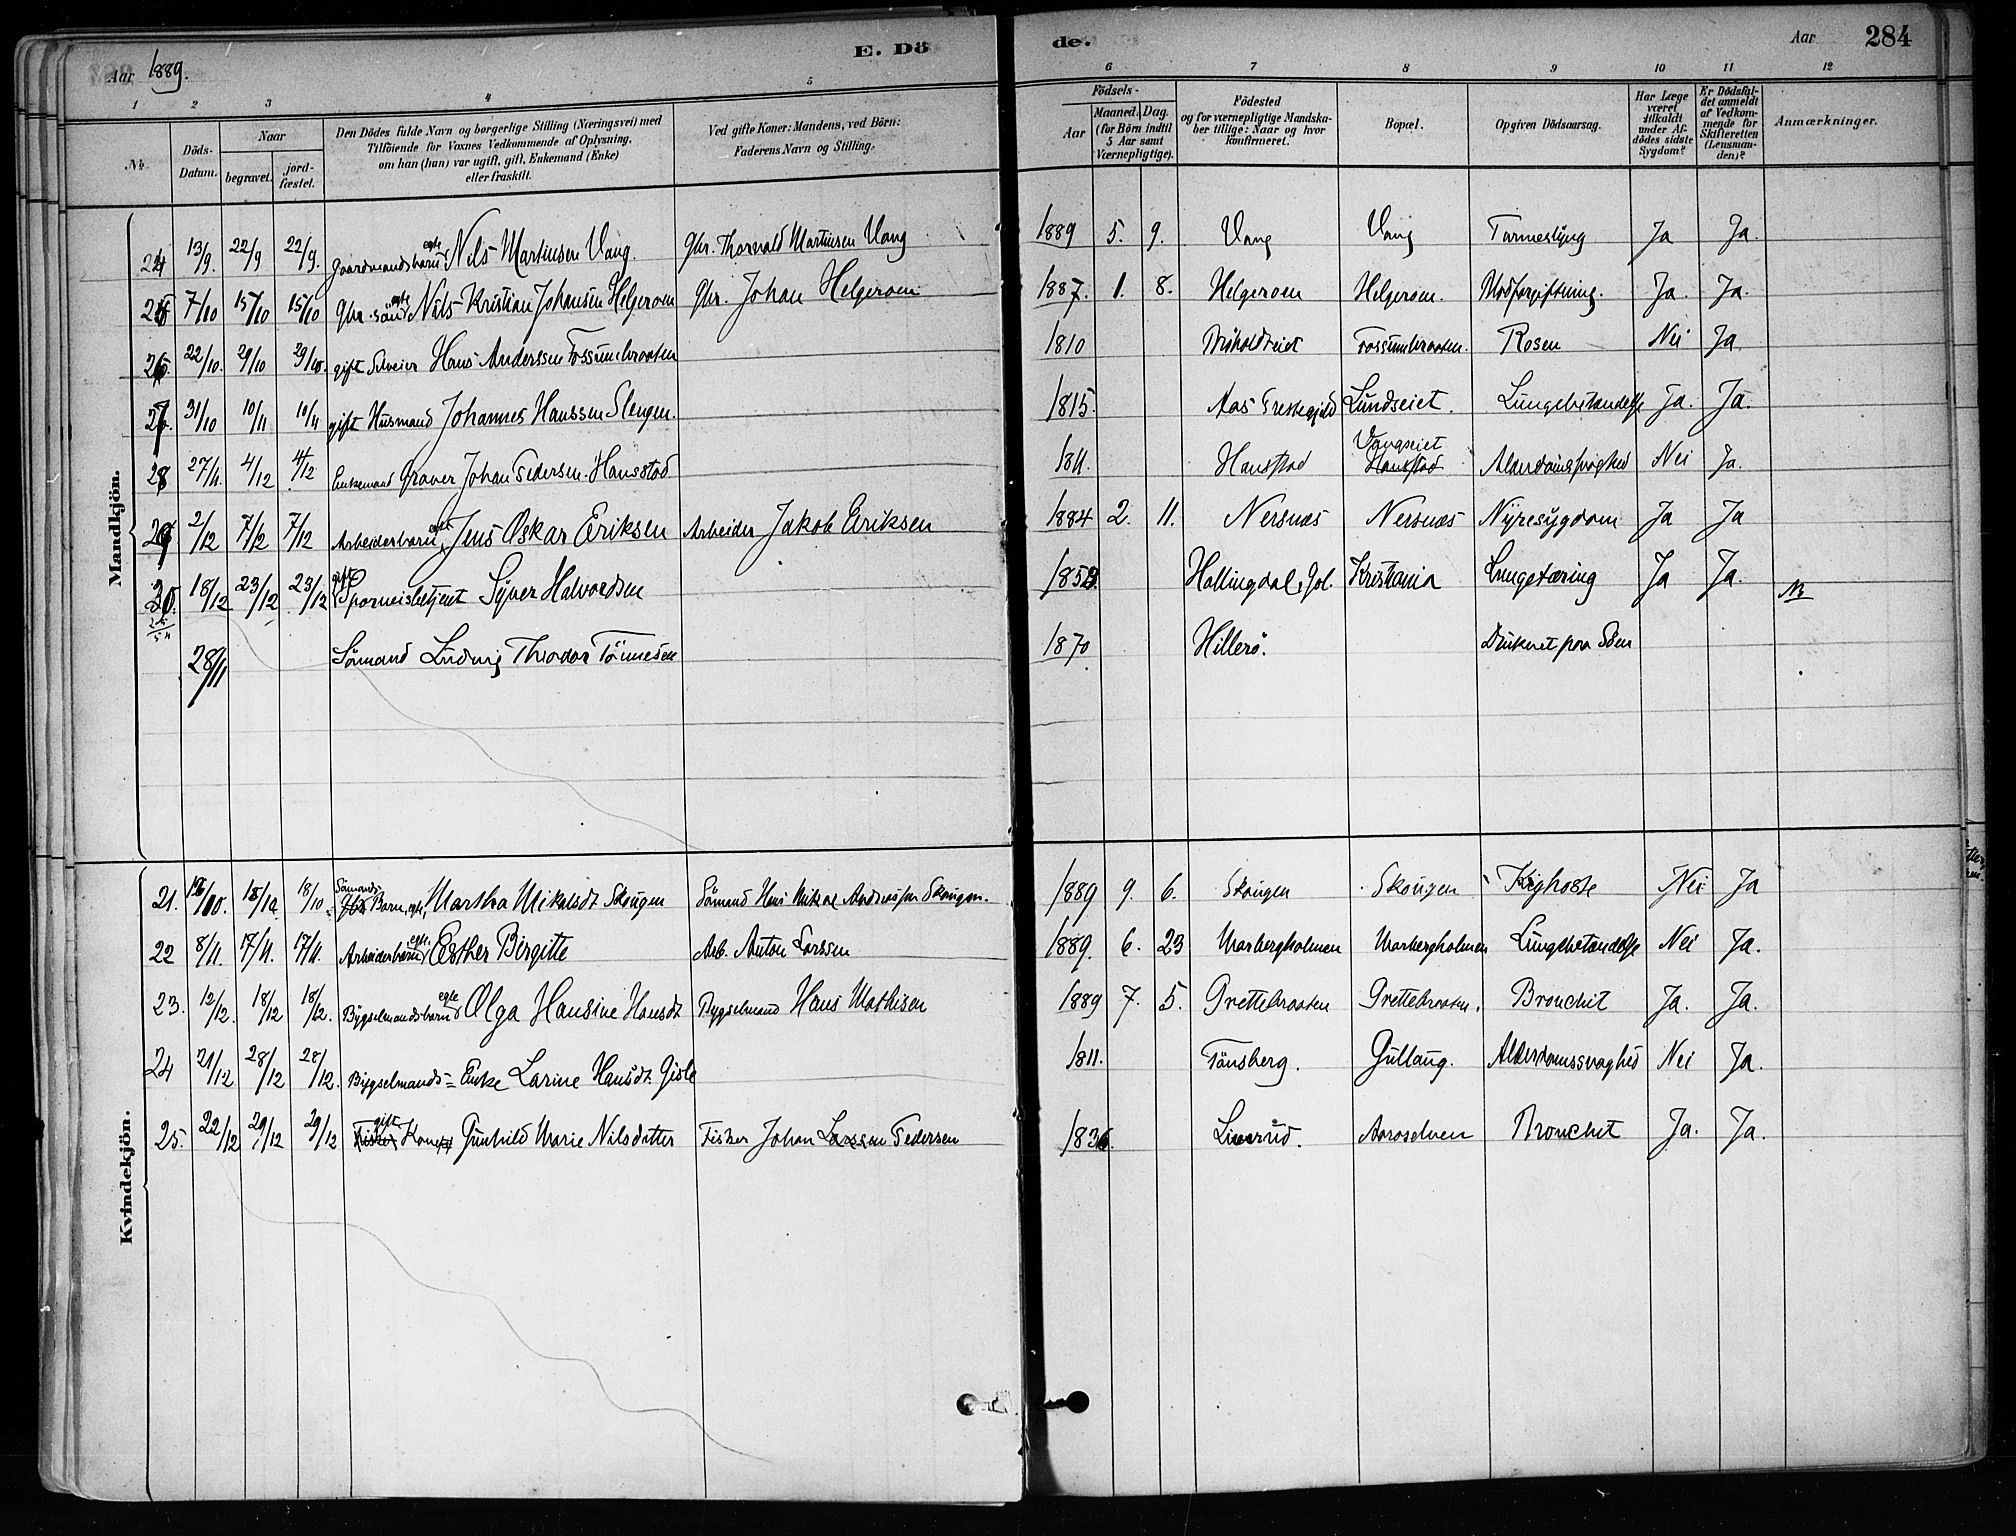 Aar 1889.
E. Dö
de.
Aar
284
1 2 3 4 5 6 7 8 9 10 11 12
No.
Döds-Datum.
Naar
begravet.
jordfæstet.
Den Dödes fulde Navn og borgerlige Stilling (Næringsvei) med
Tilföiende for Voxnes Vedkommende af Oplysning,
om han (hun) var ugift, gift, Enkemand (Enke)
eller fraskilt.
Ved gifte Koner: Mandens, ved Börn:
Faderens Navn og Stilling.
Födsels-
Aar
Maaned. Dag.
(for Börn indtil
5 Aar samt
Værnepligtige).
Födested
og for værnepligtige Mandska-
ber tillige: Naar og hvor
konfirmeret.
Bopæl.
Opgiven Dödsaarsag.
Har Læge
været
tilkaldt
under Af-
dödes sidste
Sygdom?
Er Dödsfal-
det anmeldt
af Vedkom-
mende for
Skifteretten
(Lensman-
den)?
Anmærkninger.
Mandkjön.
24 13/9. 22/9 22/9. Gaardmandsbarn egte Nils Martinsen Vang. Gbr. Thorvald Martinsen Vang 1889 5. 9. Vang Vang Tarmeslyng Ja Ja.
25 7/10 15/10 15/10 Gbr. sön egte Nils Kristian Johansen Helgerom Gbr. Johan Helgerom 1887. 1. 8. Helgerom Helgerom. Blodforgiftning. Ja. Ja.
26. 22/10. 29/10 29/10. gift Selveier Hans Anderssen Fossumbraaten 1810 Fossumbraaten. Rosen Nei Ja
27. 31/10 10/11 10/11 gift Husmand Johannes Hanssen Slengen. 1815. Aas Prestegjeld Lundseiet. Lungebetændelse Ja. Ja.
28 27/11. 4/12 4/12 Enkemand Graver Johan Pedersen Hansstad 1811. Hanstad Vangseiet Hanstad Alderdomssvaghed Nei Ja.
29 2/12 7/12 7/12 Arbeiderbarn egte Jens Oskar Eriksen Arbeider Jakob Eriksen 1884 2. 11. Nersnæs Nersnæs Nyresygdom Ja Ja
30. 18/12 23/12 23/12 gift Sporveisbetjent Syver Halvordsen 1853. Hallingdal, Gol Kristiania Lungetæring Ja Ja. No
25
54
28/11 Sömand Ludvig Theodor Tönnesen 1870 Hillerö. Druknet paa Söen
Kvindekjön.
21. 16/10. 18/10 18/10. Sömands Barn, egte, Martha Mikalsdt Skougen Sömand Hans Mikal Andreassen Skougen. 1889 9. 6. Skougen Skougen Kighoste Nei Ja
22 8/11. 17/11. 17/11. Arbeiderbarn egte. Esther Birgitte Arb. Anton Larssen 1889. 6. 23 Narbergholmen Narbergholmen Lungebetændelse Nei Ja.
23. 12/12. 18/12 18/12. Bygselmandsbarn egte Olga Hansine Hansdt Bygselmand Hans Mathisen 1889 7. 5. Grettebraaten Grettebraaten. Bronchit Ja. Ja.
24 21/12 28/12 28/12. Bygselmands-Enke Larine Hansdt. Gisle 1811. Tönsberg. Gullaug. Alderdomssvaghed Nei Ja.
25. 22/12 29/12 29/12 Fisker gift Kone Gunhild Marie Nilsdatter Fisker Johan Larssen Pedersen 1836. Liverud. Aaroselven Bronchit Ja. Ja.